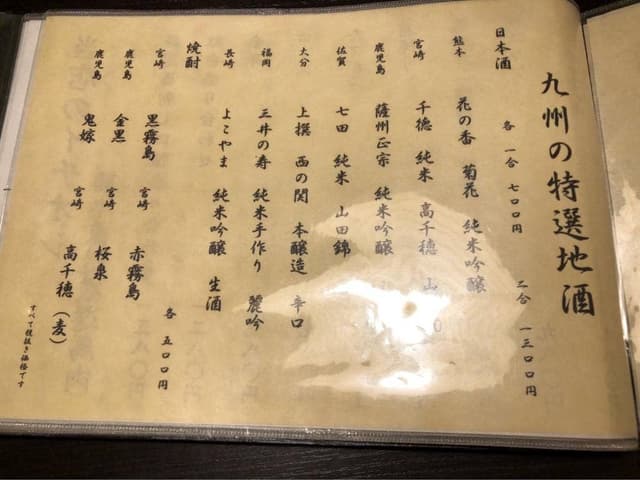 九州の特選地酒
日本酒 各 一合 七〇〇円 二合 一三〇〇円
熊本 花の香 菊花 純米吟醸
宮崎 千徳 純米 高千穂 山
鹿児島 薩州正宗 純米吟醸
佐賀 七田 純米 山田錦
大分 上撰 西の関 本醸造 辛口
福岡 三井の寿 純米手作り 麗吟
長崎 よこやま 純米吟醸 生酒
焼酎 各 五〇〇円
宮崎 黒霧島 宮崎 赤霧島
鹿児島 金黒 宮崎 桜泉
鹿児島 鬼嫁 宮崎 高千穂(麦)
すべて税抜き価格です